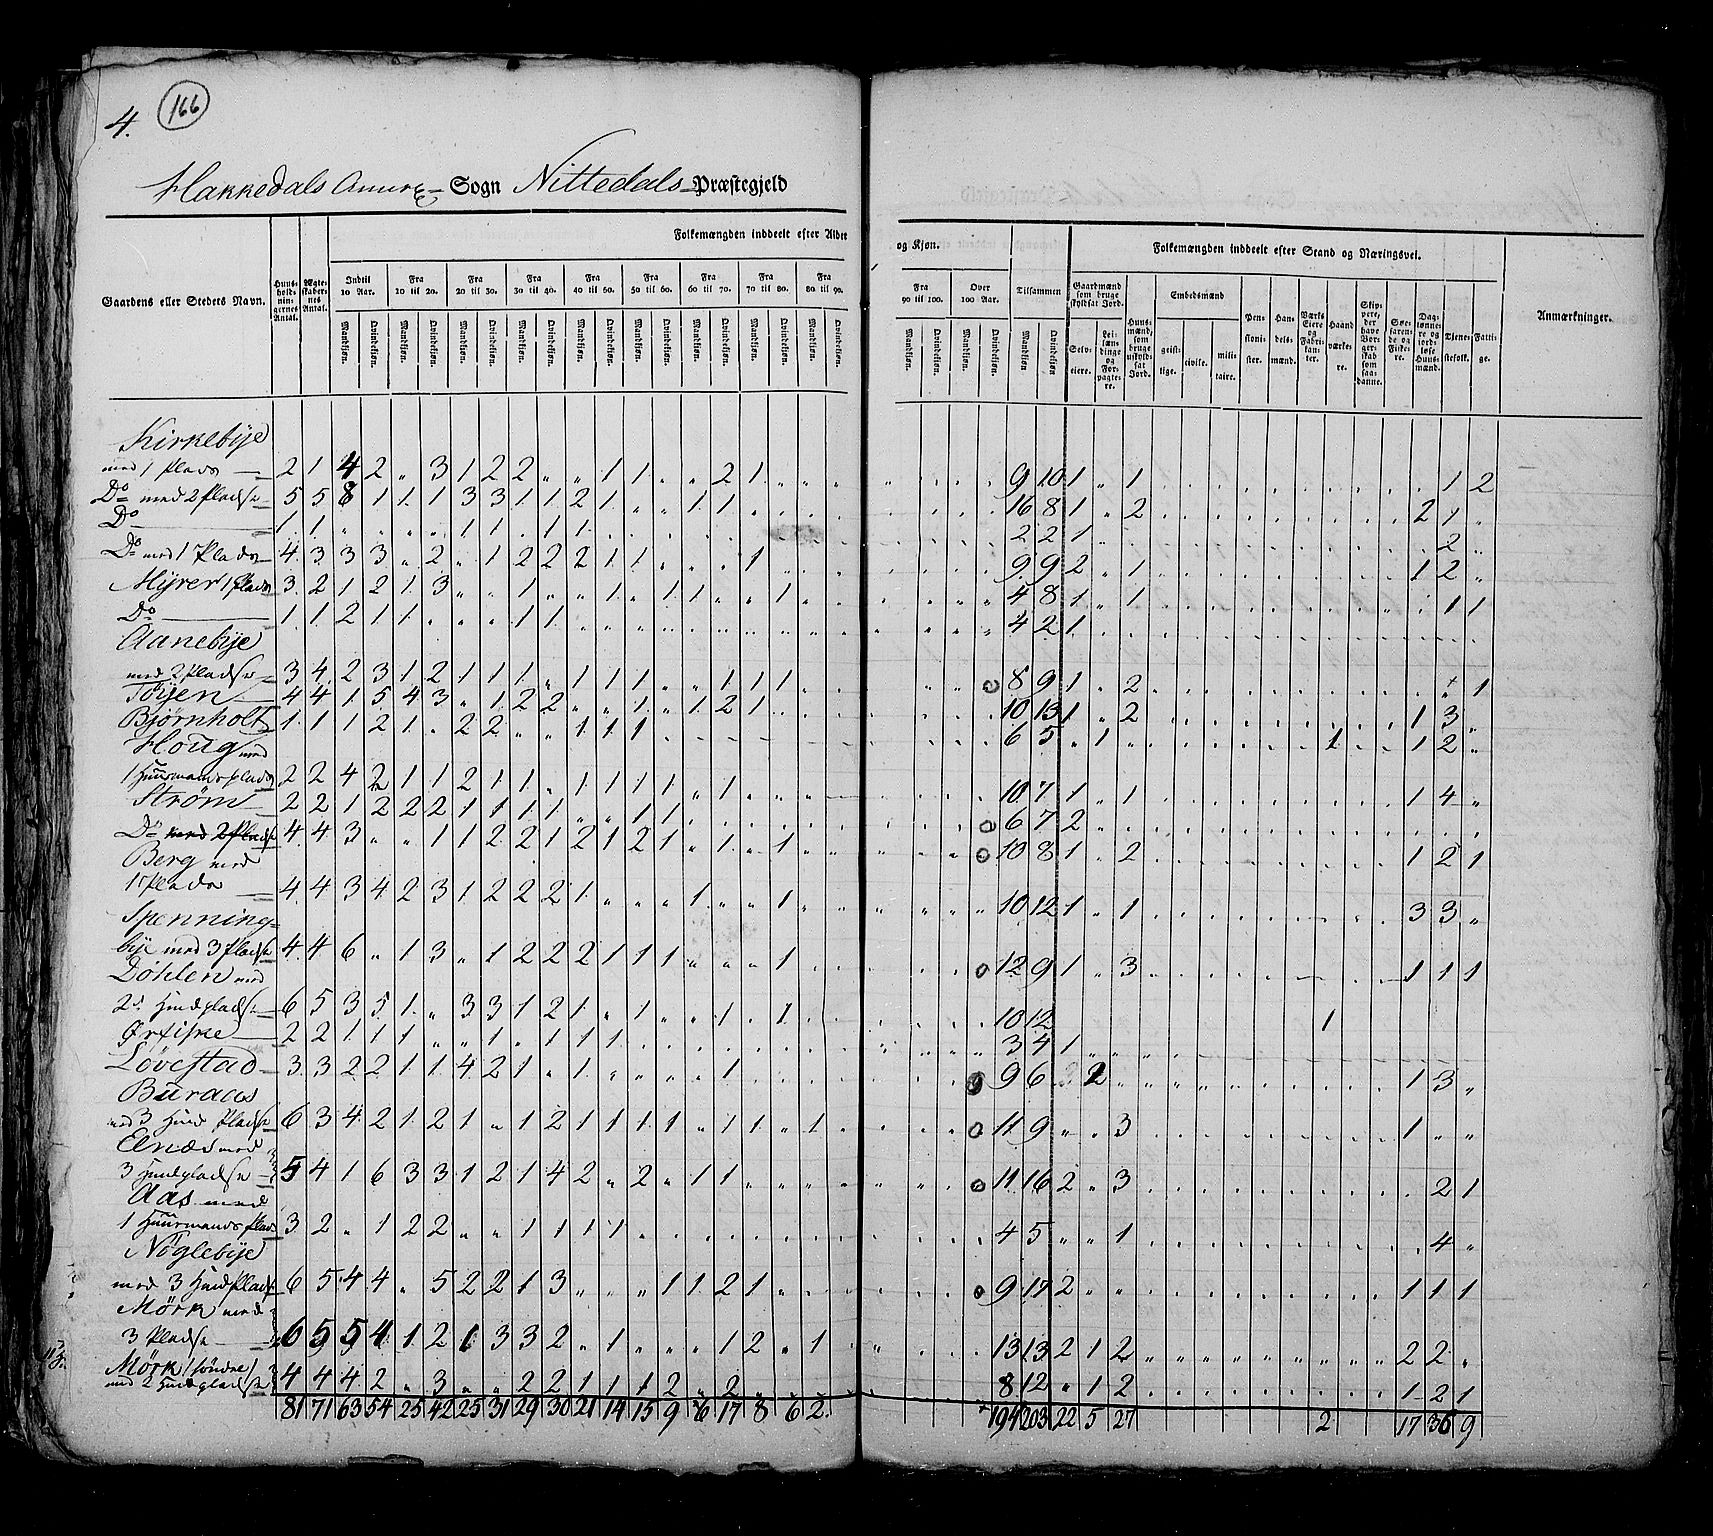 4.
166
Hakkedals Annex Sogn Nittedals Præstegjeld
Folkemængden inddeelt efter Alder
og Kjøn.
Folkemængden inddeelt efter Stand og Næringsvei.
Gaardens eller Stedets Navn.
Huus-holdnin-gernes Antal.
Ægte-skaber-nes Antal.
Indtil 10 Aar.
Fra 10 til 20.
Fra 20 til 30.
Fra 30 til 40.
Fra 40 til 50.
Fra 50 til 60.
Fra 60 til 70.
Fra 70 til 80.
Fra 80 til 90.
Fra 90 til 100.
Over 100 Aar.
Tilsammen
Gaardmænd som bruge skyldsat Jord.
Embedsmænd
Anmærkninger.
Mandkjøn. Qvindekjøn.
Selv-eiere.
Lei-læn-dinge og For-pagte-re.
Huus-mænd, som bruge uskyld-sat Jord.
geist-lige.
civile.
mili-taire.
Pen-sioni-ster.
Han-dels-mænd.
Værks-Eiere og Fabri-kan-ter.
Haand værke-re.
Skip-pere, der have Bor-ger-skab som saa-danne.
Søe-faren-de og Fiske-re.
Dag-lønne-re og jord-løse Huus-mænd.
Tjene-stefolk.
Fatti-ge.
Kirkebye
med 1 Plads 2 1 4 2 „ 3 1 2 2 „ „ 1 1 „ „ 2 1 9 10 1 „ 1 1 2
Do med 2 Pladse 5 5 8 1 1 1 3 3 1 1 2 1 „ „ 1 1 16 8 1 „ 2 2 1 „
Do 1 1 „ „ „ „ 1 1 „ 1 1 2 2 1 2 „
Do med 1 Plads 4 3 3 3 „ 2 „ 1 2 2 2 1 1 „ „ „ 1 9 9 2 „ 1 1 2 „
Myrer 1 Plads 3 2 1 2 1 3 „ „ 1 „ „ 1 „ 1 1 „ „ 1 4 8 1 „ 1 1 1
Do 1 1 2 1 1 „ „ „ 1 1 4 2 1
Aanebye
med 2 Pladse 3 4 2 3 1 2 1 1 1 „ 1 1 1 „ „ 1 1 1 8 9 1 „ 2 1
Tøyen 4 4 1 5 4 3 „ 1 2 2 „ „ 1 „ 1 2 1 10 13 1 „ 2 1 3 „
Bjørnholt 1 1 1 2 1 „ 2 2 „ „ 1 1 1 6 5 „ 1 1 1 2 „
Houg med
1 Huusmandsplads 2 2 4 2 1 1 2 1 1 „ 1 1 1 1 „ 1 10 7 1 „ 1 1 4 „
Strøm 2 2 1 2 2 2 1 1 1 1 „ „ 1 1 6 7 2
Do med 2 Pladse 4 4 3 „ „ 1 1 2 2 1 2 1 2 1 „ 1 „ 1 10 8 1 „ 2 1 2 1
Berg med
1 Plads 4 4 3 4 2 3 1 2 2 2 1 „ „ „ 1 „ „ 1 10 12 1 „ 1 3 3 „
Spenning-
bye med 3 Pladse 4 4 6 „ 1 3 „ 1 2 2 2 1 1 1 „ „ „ 1 12 9 1 „ 3 1 1 1
Döhlen med
2 Huuspladse 6 5 3 5 1 „ 3 3 1 2 1 „ 1 „ „ 1 „ 1 10 12 1
Ørfiske 2 2 1 1 1 „ „ 1 „ 1 1 1 3 4 1
Løvestad 3 3 2 2 1 1 4 2 1 „ 1 „ „ „ „ 1 9 6 2 1 3 „
Buraas
med 3 Huus Pladse 6 3 4 2 1 2 1 „ 1 2 1 1 1 1 „ 1 1 „ 1 11 9 „ „ 3 1 „ „
Elnæs med
3 Huuspladse 5 4 1 6 3 3 1 2 1 4 2 „ 2 „ 1 1 11 16 2 „ 3 2 1
Aas med
1 Huusmands Plads 3 2 „ 1 2 2 „ „ 1 1 1 1 4 5 „ „ 1 4 „
Nøglebye
med 3 HuusPladse 6 5 4 4 „ 5 2 2 1 3 „ „ „ 1 1 2 1 9 17 2 1 1 1
Mörk med
3 Pladse 6 5 5 4 1 2 1 3 3 2 „ 1 „ „ „ 1 2 „ 1 13 13 2 1 2 2 2 „
Mörk /søndre/
med 2 Huuspladse 4 4 4 2 „ 3 „ „ 2 2 1 1 1 2 „ 2 8 12 „ 1 2 1 2 1
81 71 63 54 25 42 25 31 29 30 21 14 15 9 6 17 8 6 2 194 203 22 5 27 2 17 36 9